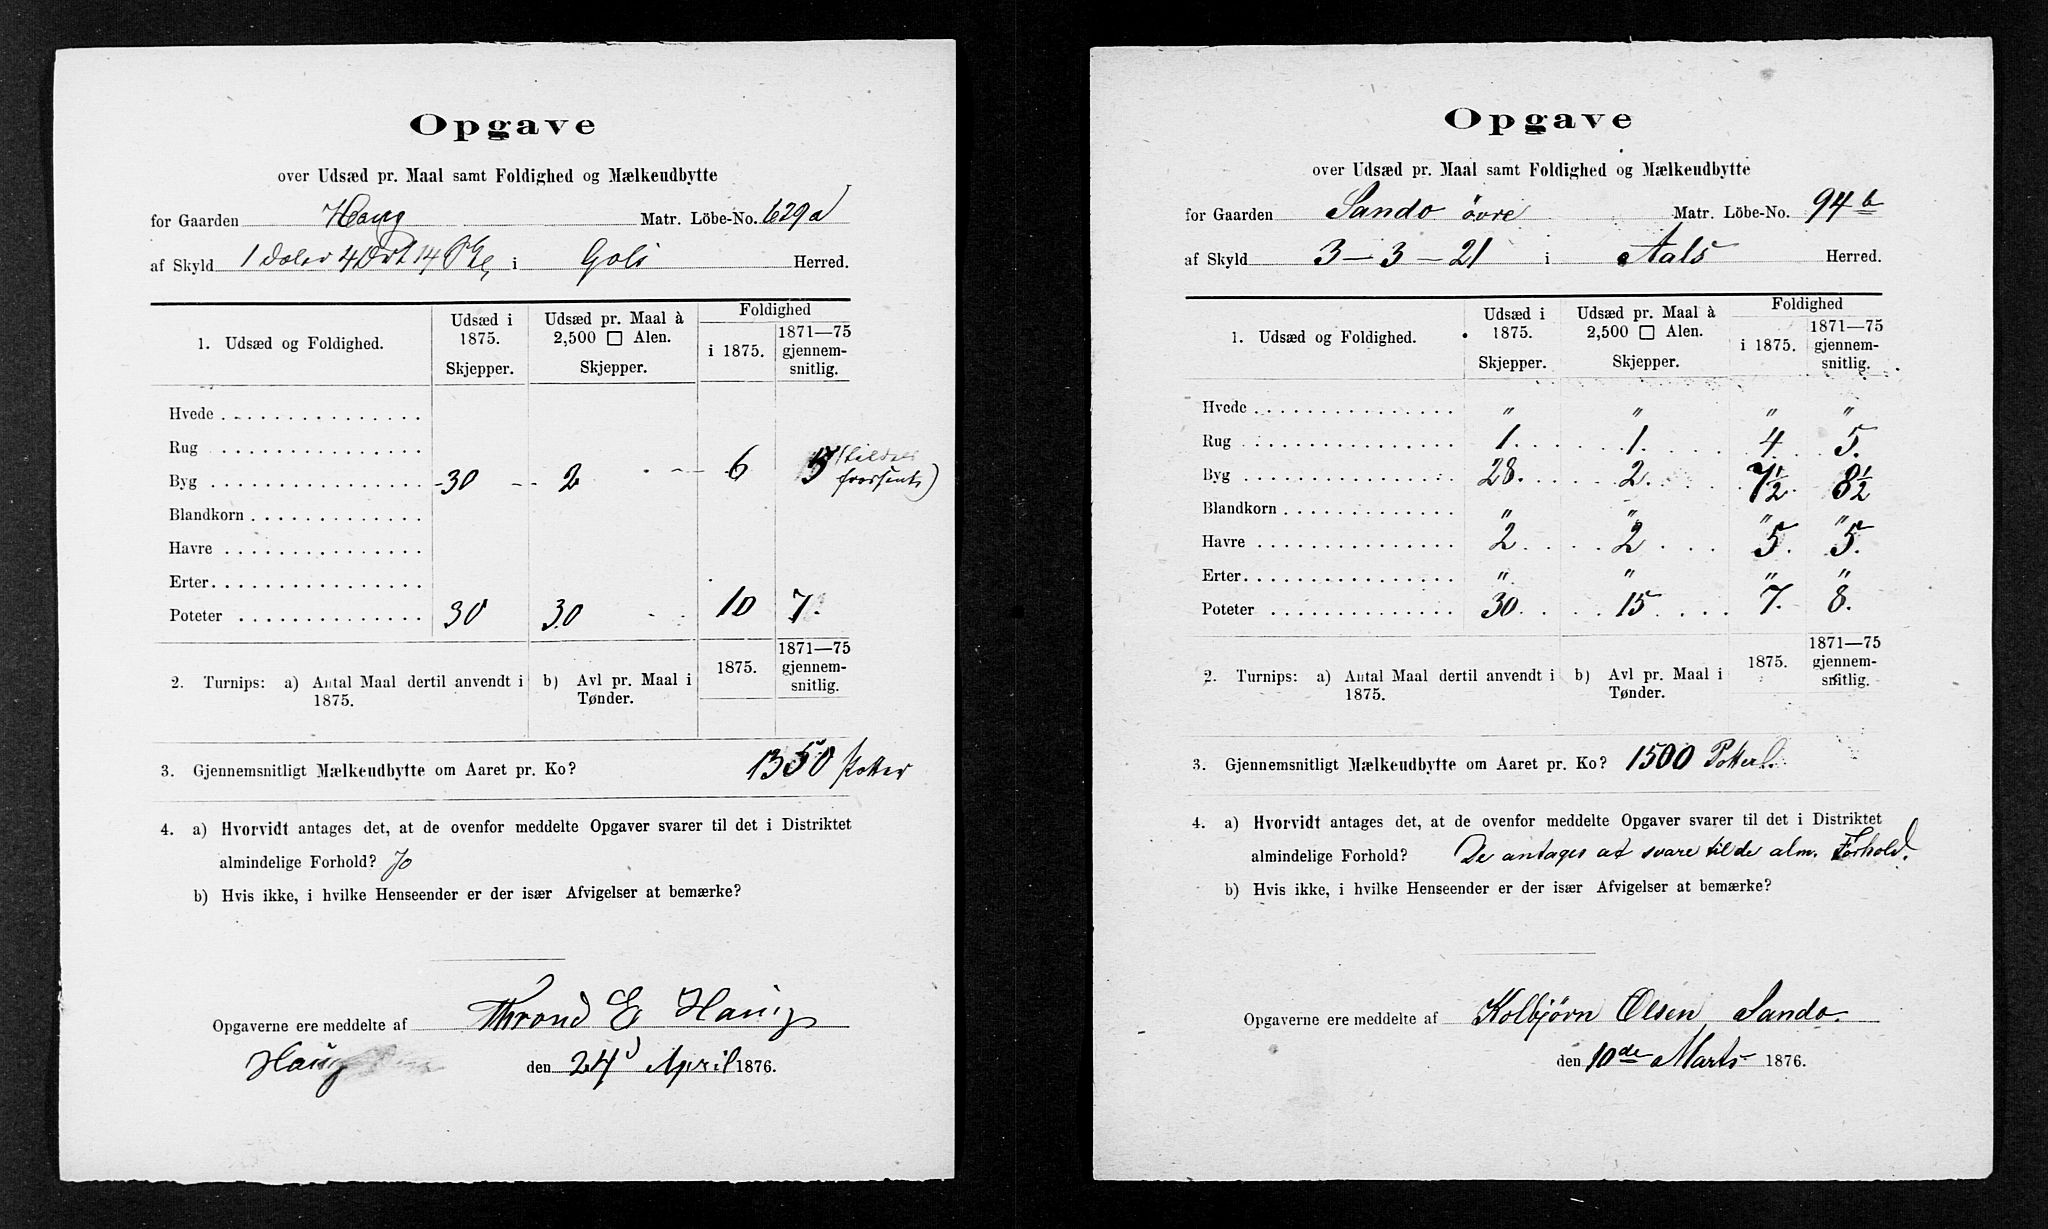 Opgave
over Udsæd pr. Maal samt Foldighed og Mælkeudbytte
for Gaarden Haug Matr. Löbe-No. 629a
af Skyld 1 daler 4 Ort 14 i Gols Herred.
1. Udsæd og Foldighed. Udsæd i 1875. Skjepper. Udsæd pr. Maal à 2,500 □ Alen. Skjepper. Foldighed i 1875. 1871—75 gjennemsnitlig.
Hvede
Rug
Byg 30 2 6 5
Blandkorn
Havre
Erter
Poteter 30 30 10 7.
2. Turnips: a) Antal Maal dertil anvendt i 1875. b) Avl pr. Maal i Tønder. 1875. 1871—75 gjennemsnitlig.
3. Gjennemsnitligt Mælkeudbytte om Aaret pr. Ko? 1350 Potter
4. a) Hvorvidt antages det, at de ovenfor meddelte Opgaver svarer til det i Distriktet
almindelige Forhold? Jo
b) Hvis ikke, i hvilke Henseender er der især Afvigelser at bemærke?
Opgaverne ere meddelte af Thrond E Haug
Haug den 24 April 1876.
Opgave
over Udsæd pr. Maal samt Foldighed og Mælkeudbytte
for Gaarden Sando övre Matr. Löbe-No. 94 b
af Skyld 3 – 3 – 21 i Aals Herred.
1. Udsæd og Foldighed. Udsæd i 1875. Skjepper. Udsæd pr. Maal à 2,500 □ Alen. Skjepper. Foldighed i 1875. 1871—75 gjennemsnitlig.
Hvede " " " "
Rug 1. 1. 4. 5.
Byg 28. 2. 7½. 8½
Blandkorn " " " "
Havre 2 2 5. 5.
Erter " " " "
Poteter 30 15 7. 8.
2. Turnips: a) Antal Maal dertil anvendt i 1875. b) Avl pr. Maal i Tønder. 1875. 1871—75 gjennemsnitlig.
3. Gjennemsnitligt Mælkeudbytte om Aaret pr. Ko? 1500 Potter.
4. a) Hvorvidt antages det, at de ovenfor meddelte Opgaver svarer til det i Distriktet
almindelige Forhold? De antages at svare til de alm. Forhold.
b) Hvis ikke, i hvilke Henseender er der især Afvigelser at bemærke?
Opgaverne ere meddelte af Kolbjørn Olsen Sando.
den 10de Marts 1876.